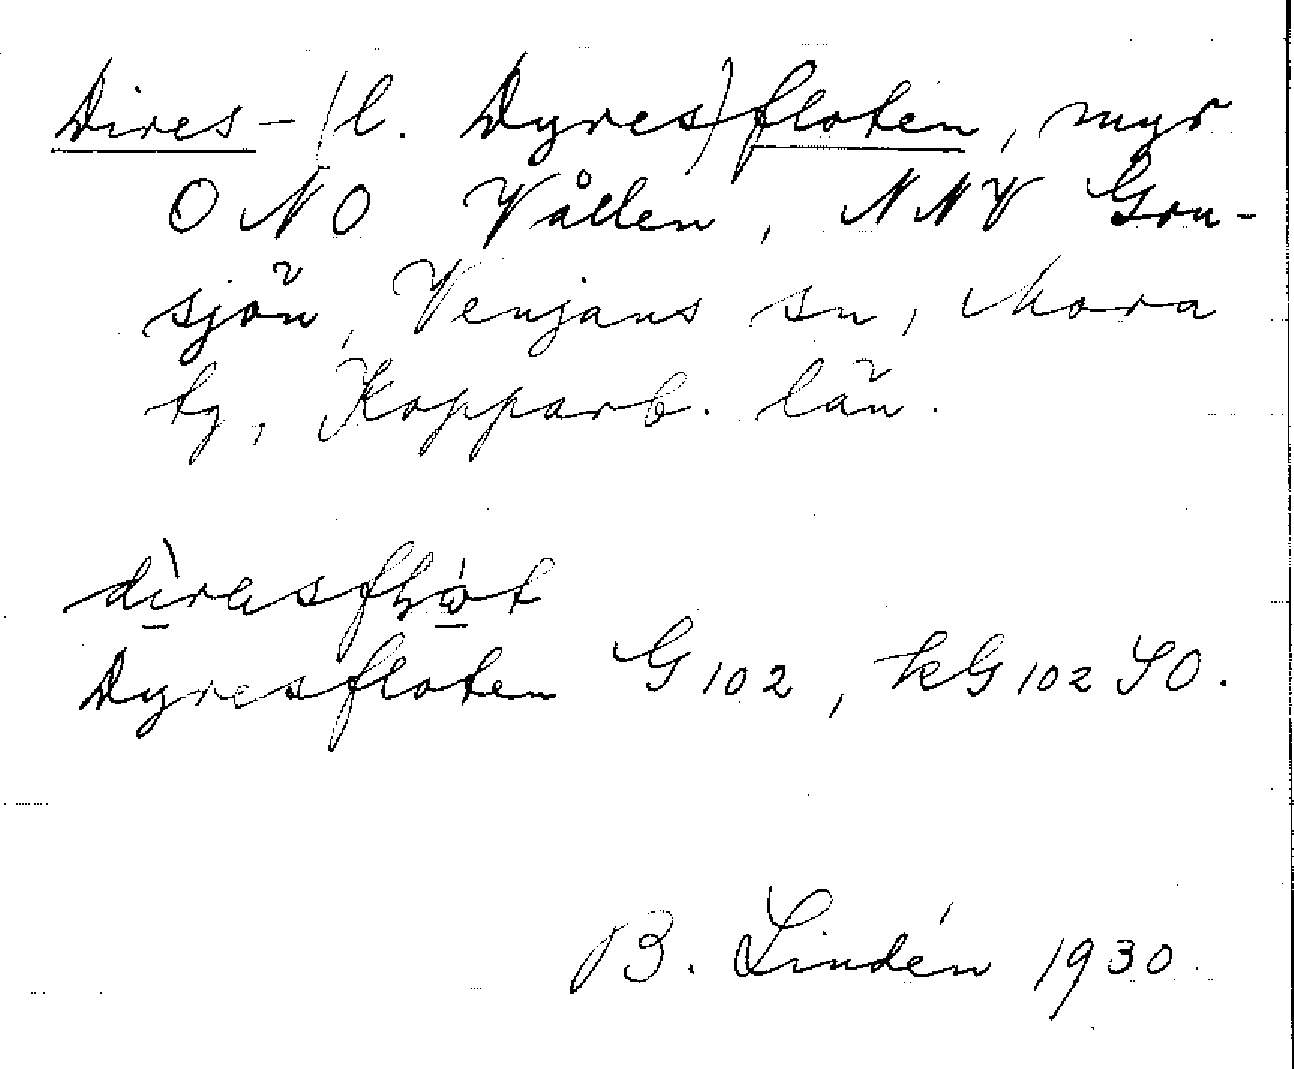 Dires- (l. Dyres)floten, myr
ONO Vållen, NNV Gru-
sjön, Venjans sn, Mora
tg, Kopparb. län.
Dyresfloten G102, kG102 SO.
B. Lindén 1930.